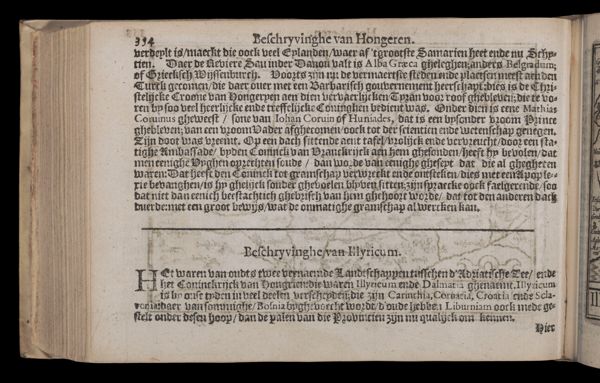 394 Beschryvinghe van Hongeren.
verdeylt is/maeckt die oock veel Eylanden/waer af 'tgrootste Samarien heet ende nu Schy-
tien. Daer de Reviere Sau inder Davou valt is Alba Græca gheleghen; anders Belgradum;
of Griecksch Wyssenburch. Voorts zijn nu de vermaertste steden ende plaetsen meest aen den
Turck gecomen/die daer over met een Barbarisch gouvernement heerschapt: dies is de Chri-
stelijcke Croone van Hongeryen aen dien vervaerlijcken Tyran voor roof ghebleven; die te vo-
ren by soo veel heerlijcke ende treffelijcke Coninghen bedient was. Onder dien is eene Mathias
Corvinus gheweest / sone van Iohan Corvin of Huniades, dat is een bysonder vroom Prince
ghebleven; van een vroom Vader afghecomen/oock tot der scientien ende wetenschap genegen.
Tijn doot was vreemt. Op een dach sittende aent tafel/vrolijck ende verheucht/door een sta-
tighe Ambassade/by den Coninck van Vranckrijck aen hem ghesonden/heeft hy bevolen/dat
men eenighe Vyghen oprechten soude / dan wo: de van eenighe gheseyt dat die al ghegheten
waren: Dat heeft den Coninck tot gramschap verweckt ende ontsteken/dies met een Apople-
xie bevanghen/is hy ghelijck sonder ghevoelen blyven sitten; zijn spraecke oock faelgerende/soo
dat niet dan eenich beestachtich ghebrisch van hem ghehoort worde/ dat tot den anderen dach
duerde: met een groot bewijs/wat de onmatighe gramschap al wercken kan.
Beschryvinghe van Illyricum.
HEt waren van oudts twee vermaerde Landtschappen tusschen d'Adriatische Zee/ ende
het Coninckrijck van Hongrien: die waren Illyricum ende Dalmatia ghenaemt. Illyricum
is by onse tyden in veel deelen verscheyden; die zijn Carinthia, Corvatia, Croatia ende Scla-
vonia: daer van sommighe/Bosnia byghevoecht wordt/d'oude hebben Liburniam oock mede ge-
stelt onder desen hoop/dan de palen van die Provincien zijn nu qualijck om kennen.
Hier